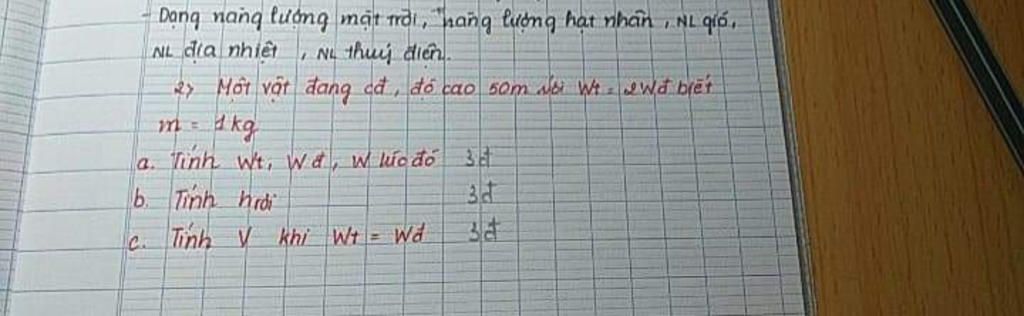 - Dạng năng lượng mặt trời, năng lượng hạt nhân, NL gió,
NL địa nhiệt, NL thuỷ điện.
2> Một vật đang cđ, độ cao 50m với Wt = 2Wđ biết
m = 1kg
a. Tính Wt, Wđ, W lúc đó 3đ
b. Tính hrơi 3đ
c. Tính V khi Wt = Wđ 3đ